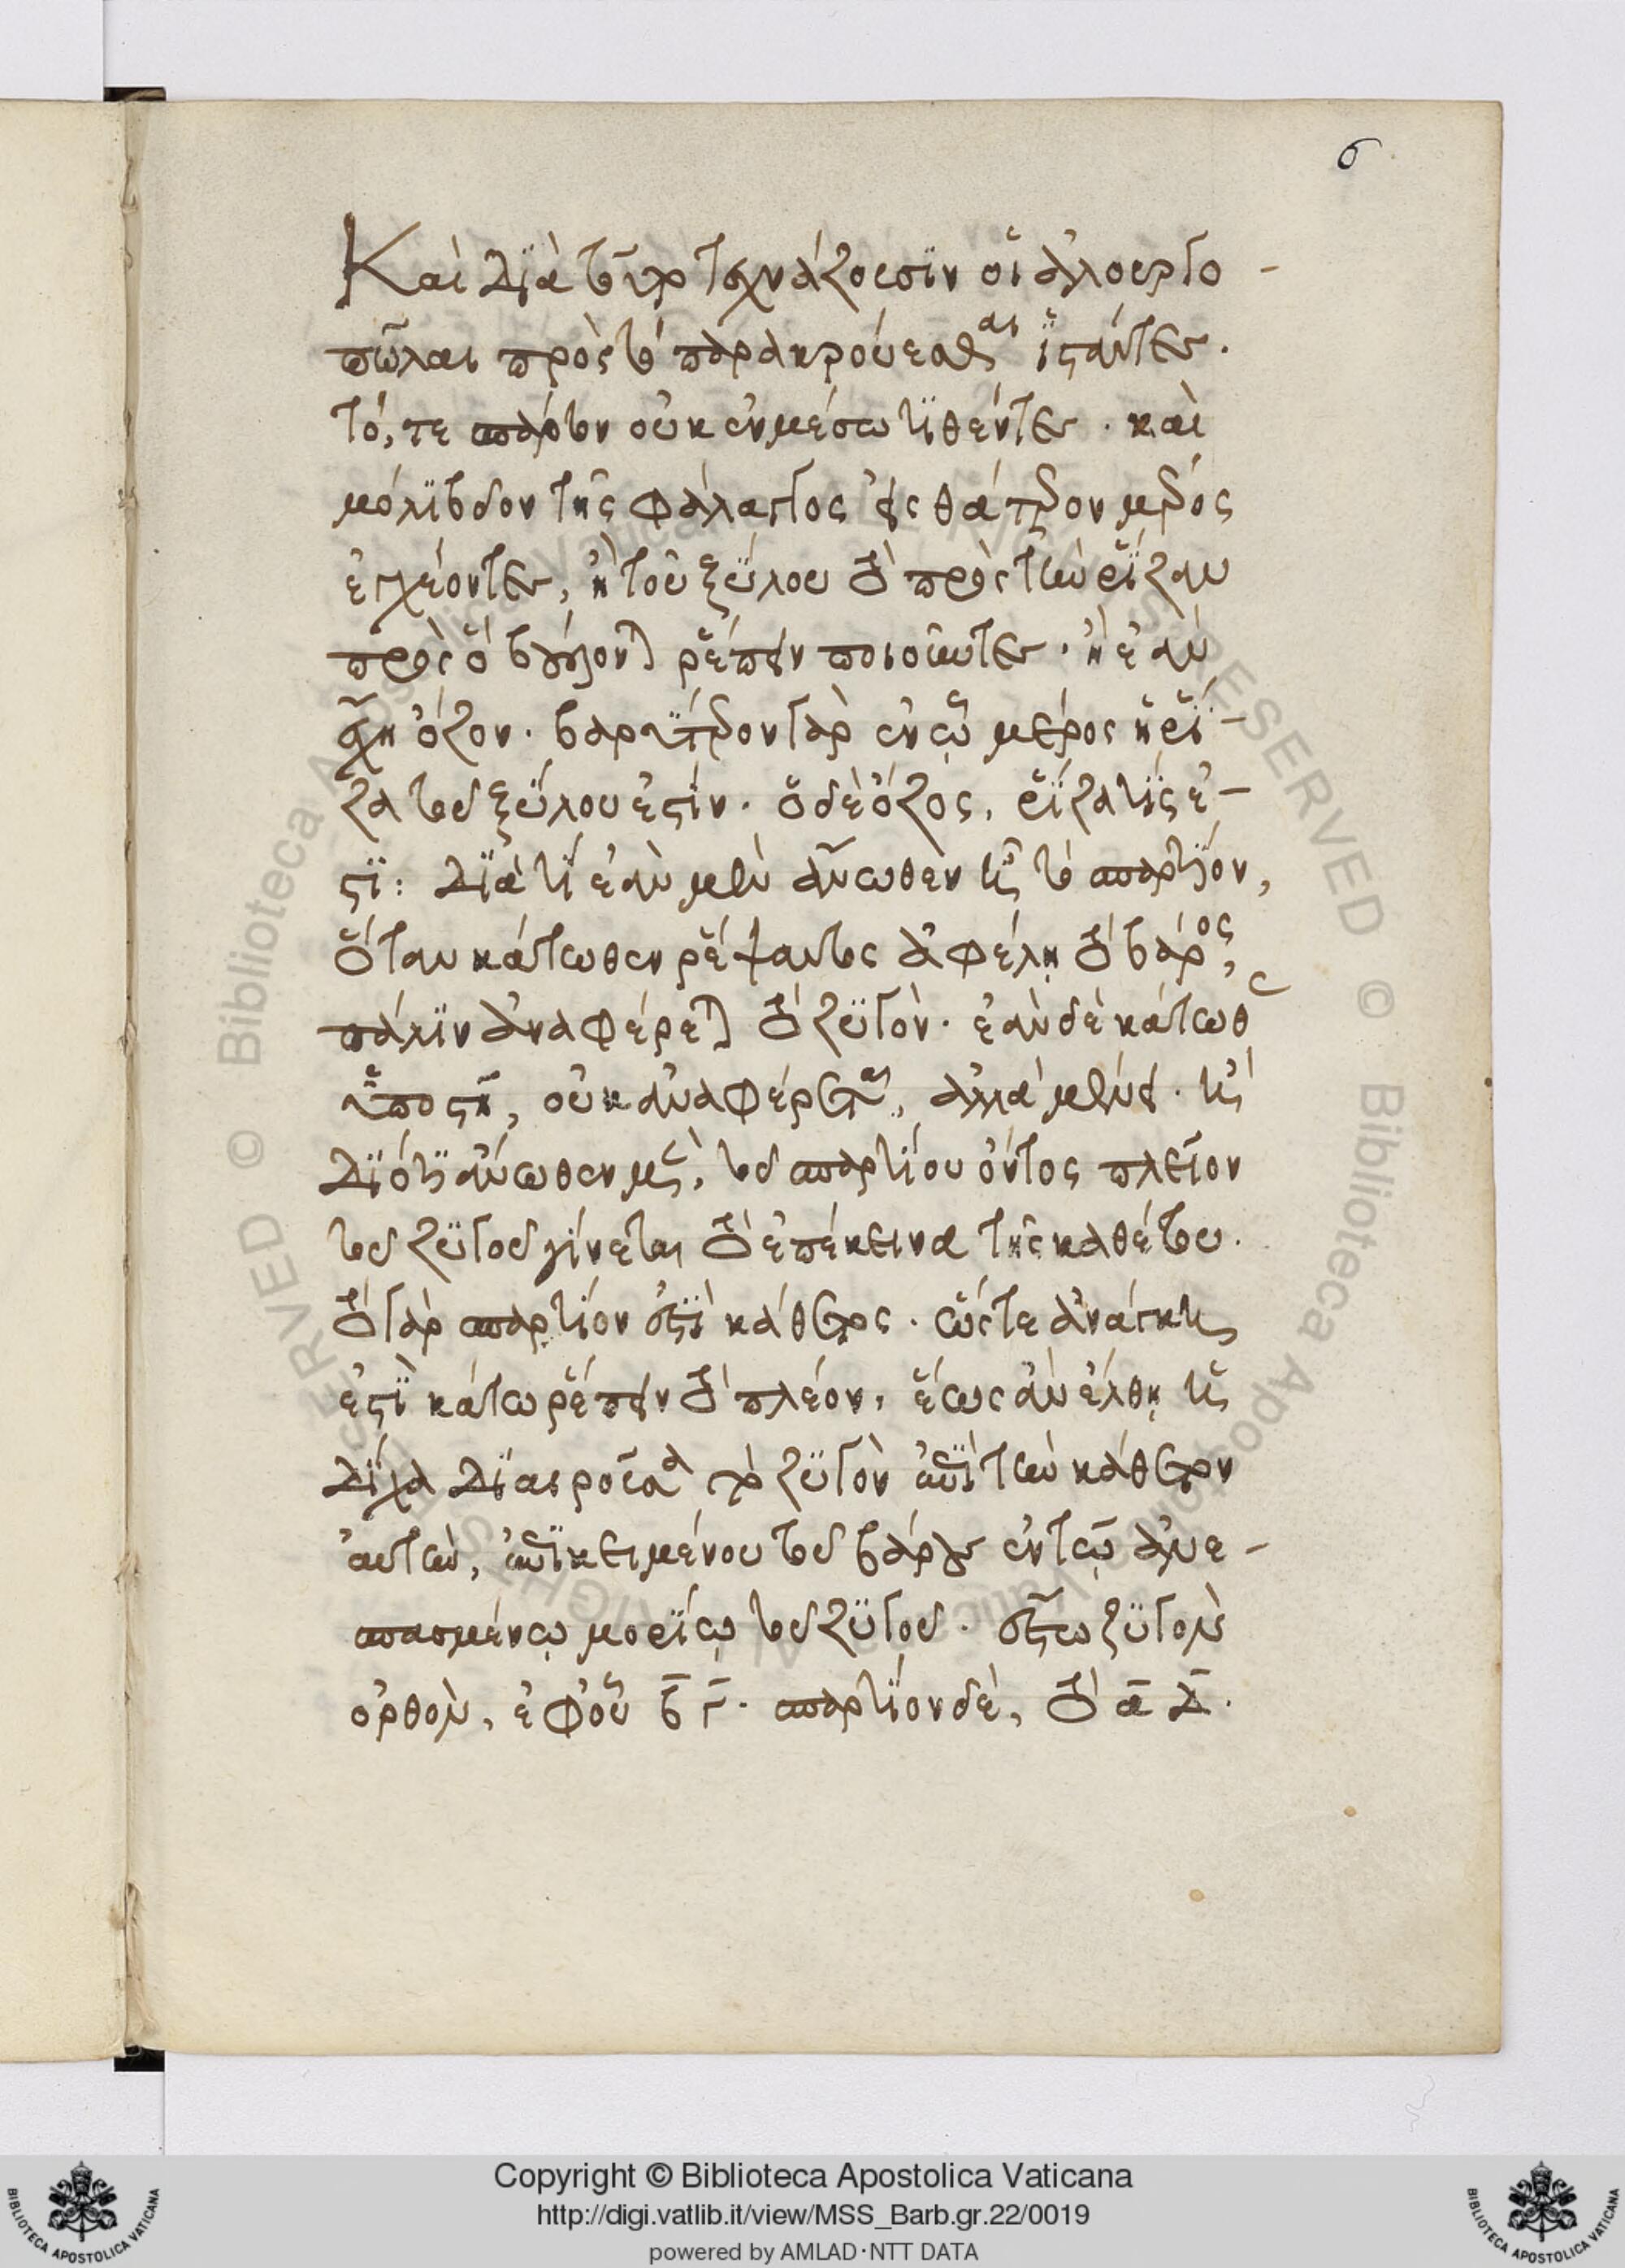 6
Καὶ διὰ τοῦτο τεχνάζουσιν οἱ ἁλουργο-
πῶλαι πρὸς τὸ παρακρούεσθαι ἱστάντες.
τό, τε σπάρτον οὐκ ἐν μέσω τιθέντες. καὶ
μόλιβδον τῆς φάλαγγος εἰς θάτερον μέρος
ἐγχέοντες, ἢ τοῦ ξύλου τὸ πρὸς τὴν ῥίζαν
πρὸς ὃ βούλονται ῥέπειν ποιοῦντες. ἢ ἐὰν
ἔχη ὄζον. βαρύτερον γὰρ ἐν ᾧ μέρος ἡ ῥί-
ζα τοῦ ξύλου ἐστίν. ὁ δὲ ὄζος, ῥίζα τίς ἐ-
στι: Διὰ τί ἐὰν μὲν ἄνωθεν ᾖ τὸ σπαρτίον,
ὅταν κάτωθεν ῥέψαντος ἀφέλη τὸ βάρος,
πάλιν ἀναφέρεται τὸ ζυγόν. ἐὰν δὲ κάτωθεν
ὑποστῆ, οὐκ ἀναφέρεται, ἀλλὰ μένει. ἢ
διότι ἄνωθεν μὲν, τοῦ σπαρτίου ὄντος πλεῖον
τοῦ ζυγοῦ γίνεται τὸ ἐπέκεινα τῆς καθέτου.
τὸ γὰρ σπαρτίον ἐστὶ κάθετος. ὥστε ἀνάγκη
ἐστὶ κάτω ῥέπειν τὸ πλέον, ἕως ἂν ἔλθη ἡ
δίχα διαιροῦσα τὸ ζυγὸν ἐπὶ τὴν κάθετον
αὐτὴν, ἐπικειμένου τοῦ βάρους ἐν τῷ ἀνε-
σπασμένῳ μορίῳ τοῦ ζυγοῦ. ἔστω ζυγὸν
ὀρθὸν, ἐφ' οὗ β γ. σπαρτίον δὲ, τὸ α δ.
Copyright © Biblioteca Apostolica Vaticana
http://digi.vatlib.it/view/MSS_Barb.gr.22/0019
powered by AMLAD·NTT DATA